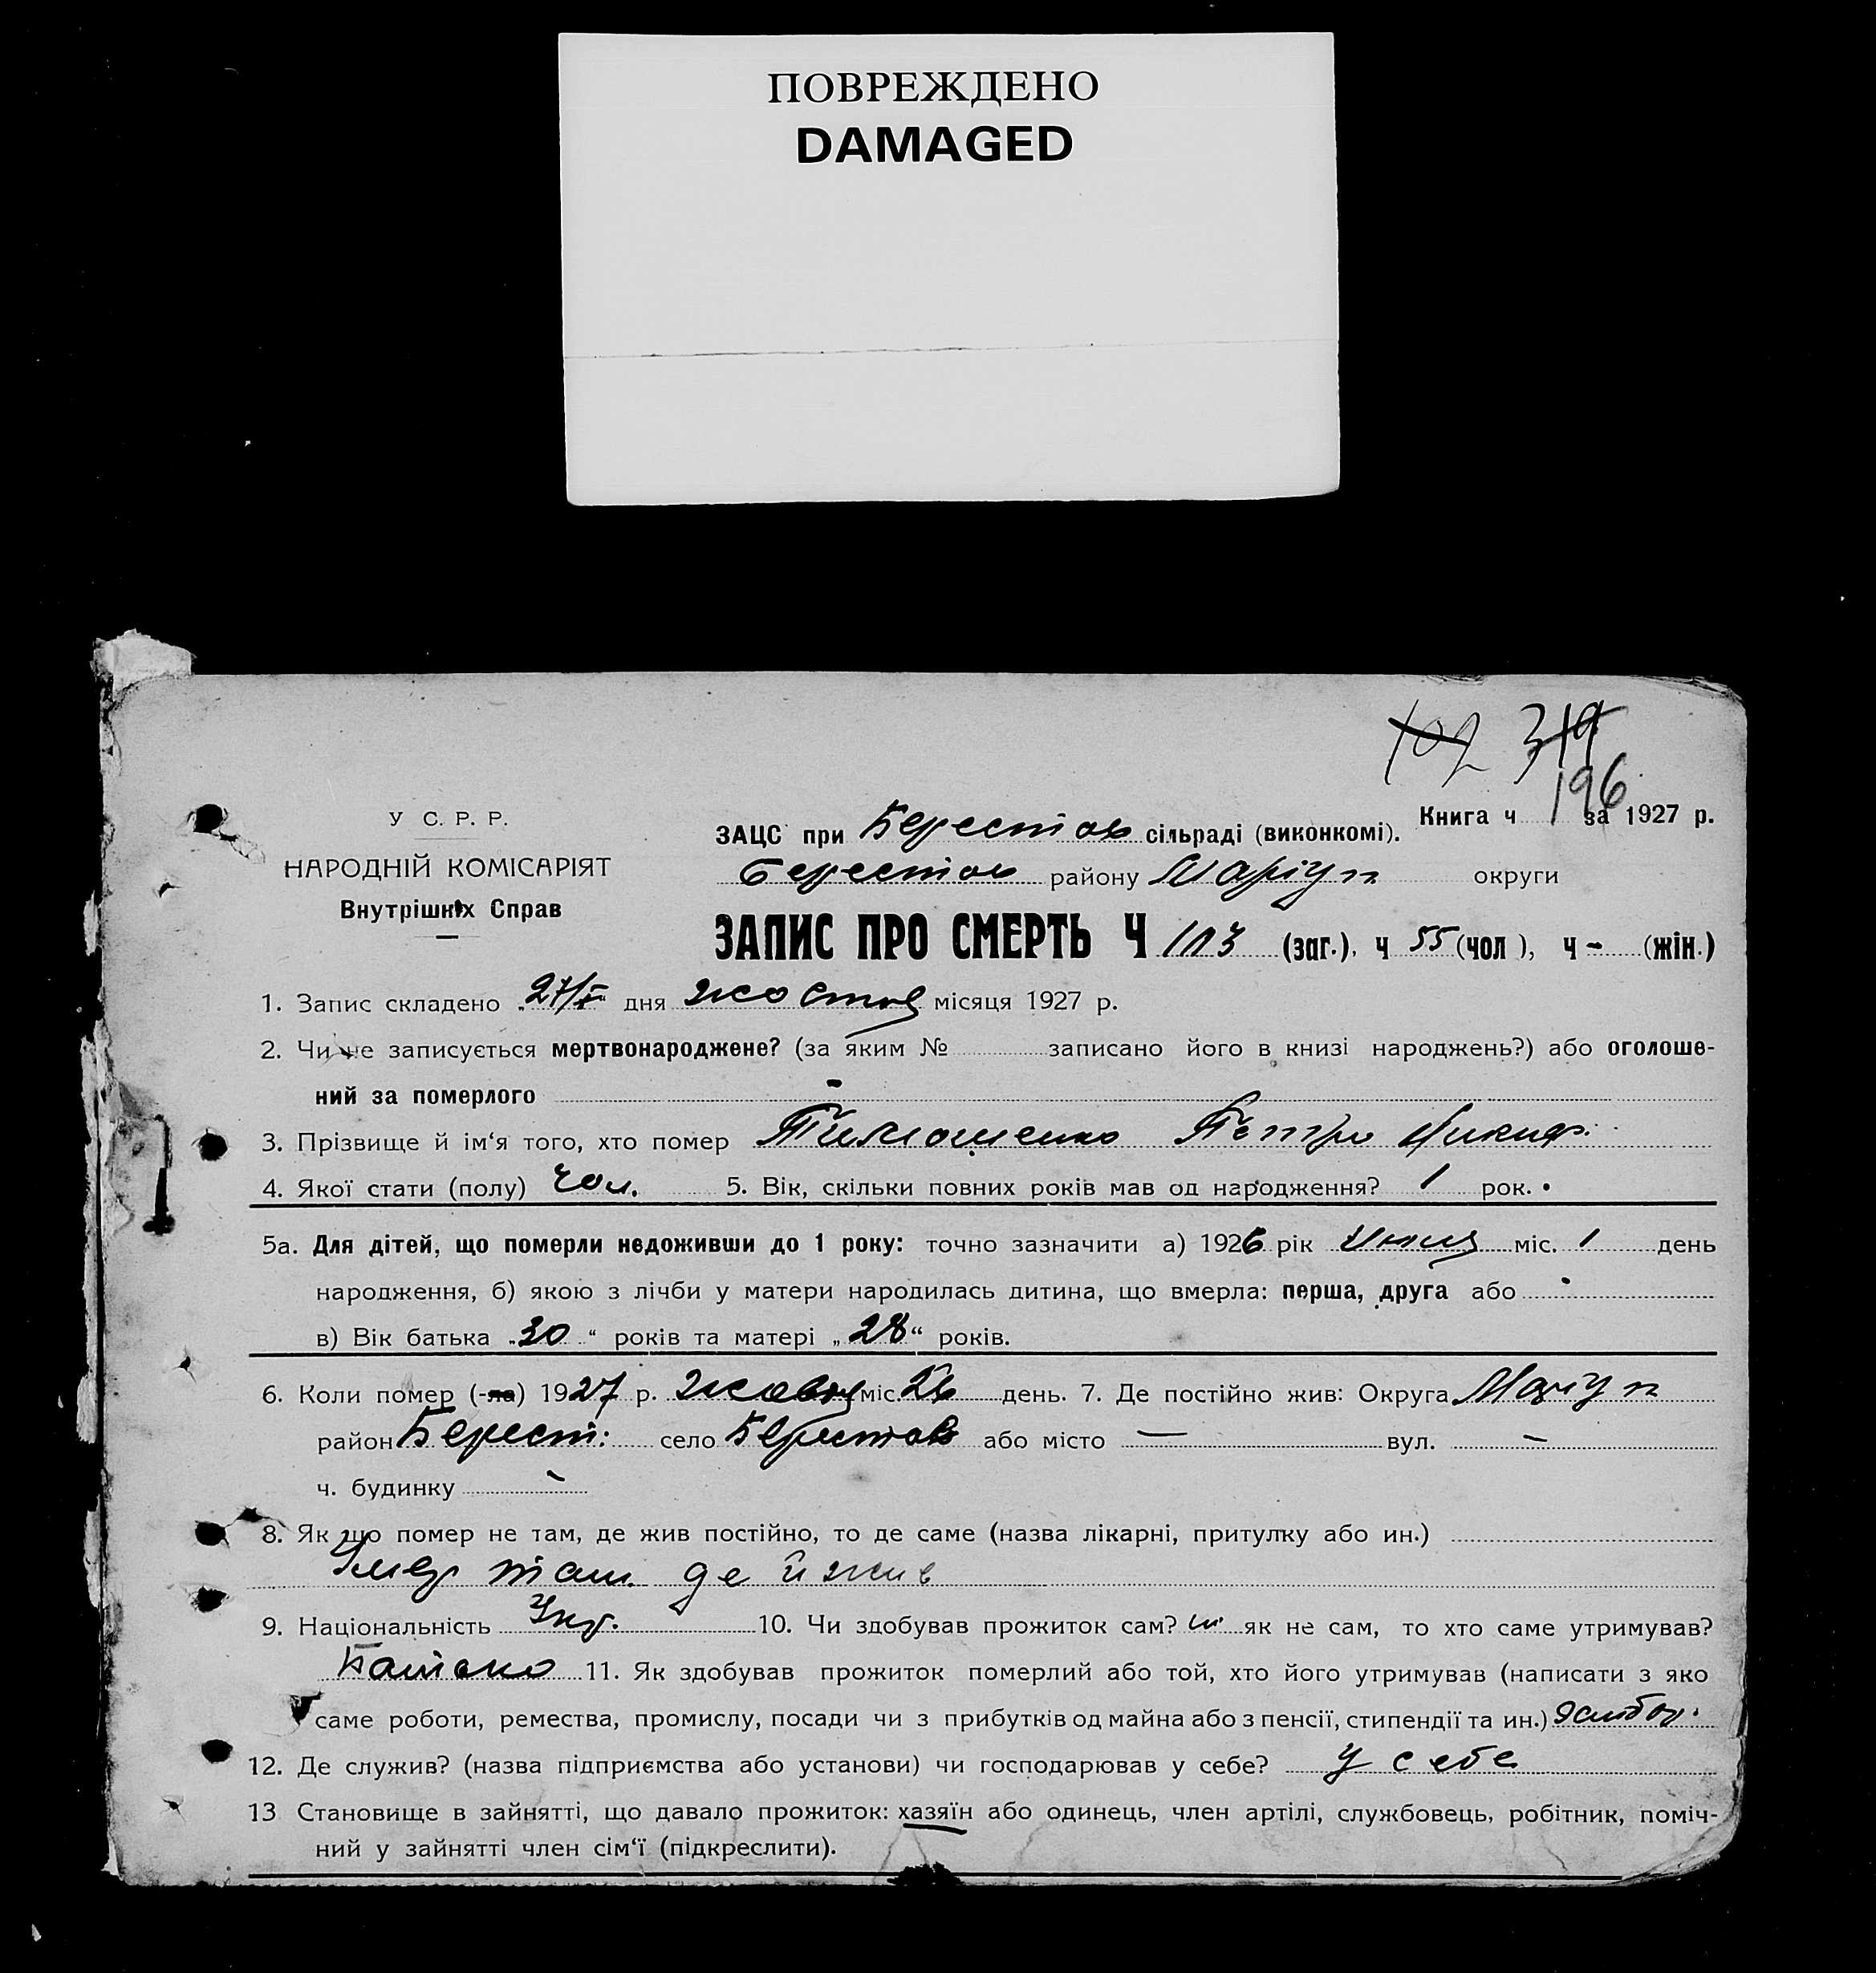 ПОВРЕЖДЕНО
DAMAGED
107 319
196
У С. Р. Р.
НАРОДНІЙ КОМІСАРІЯТ
Внутрішніх Справ
Книга ч 1 за 1927 р.
ЗАЦС при Берестов сільраді (виконкомі).
Берестов району Маріуп округи
ЗАПИС ПРО СМЕРТЬ Ч 113 (заг.), ч 55 (чол ), ч - (жін.)
1. Запис складено „27/X“ дня жовтня місяця 1927 р.
2. Чи не записується мертвонароджене? (за яким № записано його в книзі народжень?) або оголоше-
ний за померлого -
3. Прізвище й ім‘я того, хто помер Тимошенко Петро Никиф.
4. Якої стати (полу) чол. 5. Вік, скільки повних років мав од народження? 1 рок.
5а. Для дітей, що померли недоживши до 1 року: точно зазначити а) 1926 рік міс. 1 день
народження, б) якою з лічби у матери народилась дитина, що вмерла: перша, друга або
в) Вік батька „30“ років та матері „28“ років.
6. Коли помер (-ла) 1927 р. жовтн міс 26 день. 7. Де постійно жив: Округа Маріуп
район Берест: село Берестов або місто — вул. —
ч. будинку -
8. Як що помер не там, де жив постійно, то де саме (назва лікарні, притулку або ин.)
Умер там де й жив
9. Національність Укр. 10. Чи здобував прожиток сам? ні як не сам, то хто саме утримував?
Батько 11. Як здобував прожиток померлий або той, хто його утримував (написати з яко
саме роботи, ремества, промислу, посади чи з прибутків од майна або з пенсії, стипендії та ин.)
12. Де служив? (назва підприємства або установи) чи господарював у себе? у себе
13 Становище в зайнятті, що давало прожиток: хазяїн або одинець, член артілі, службовець, робітник, поміч-
ний у зайнятті член сім‘ї (підкреслити).